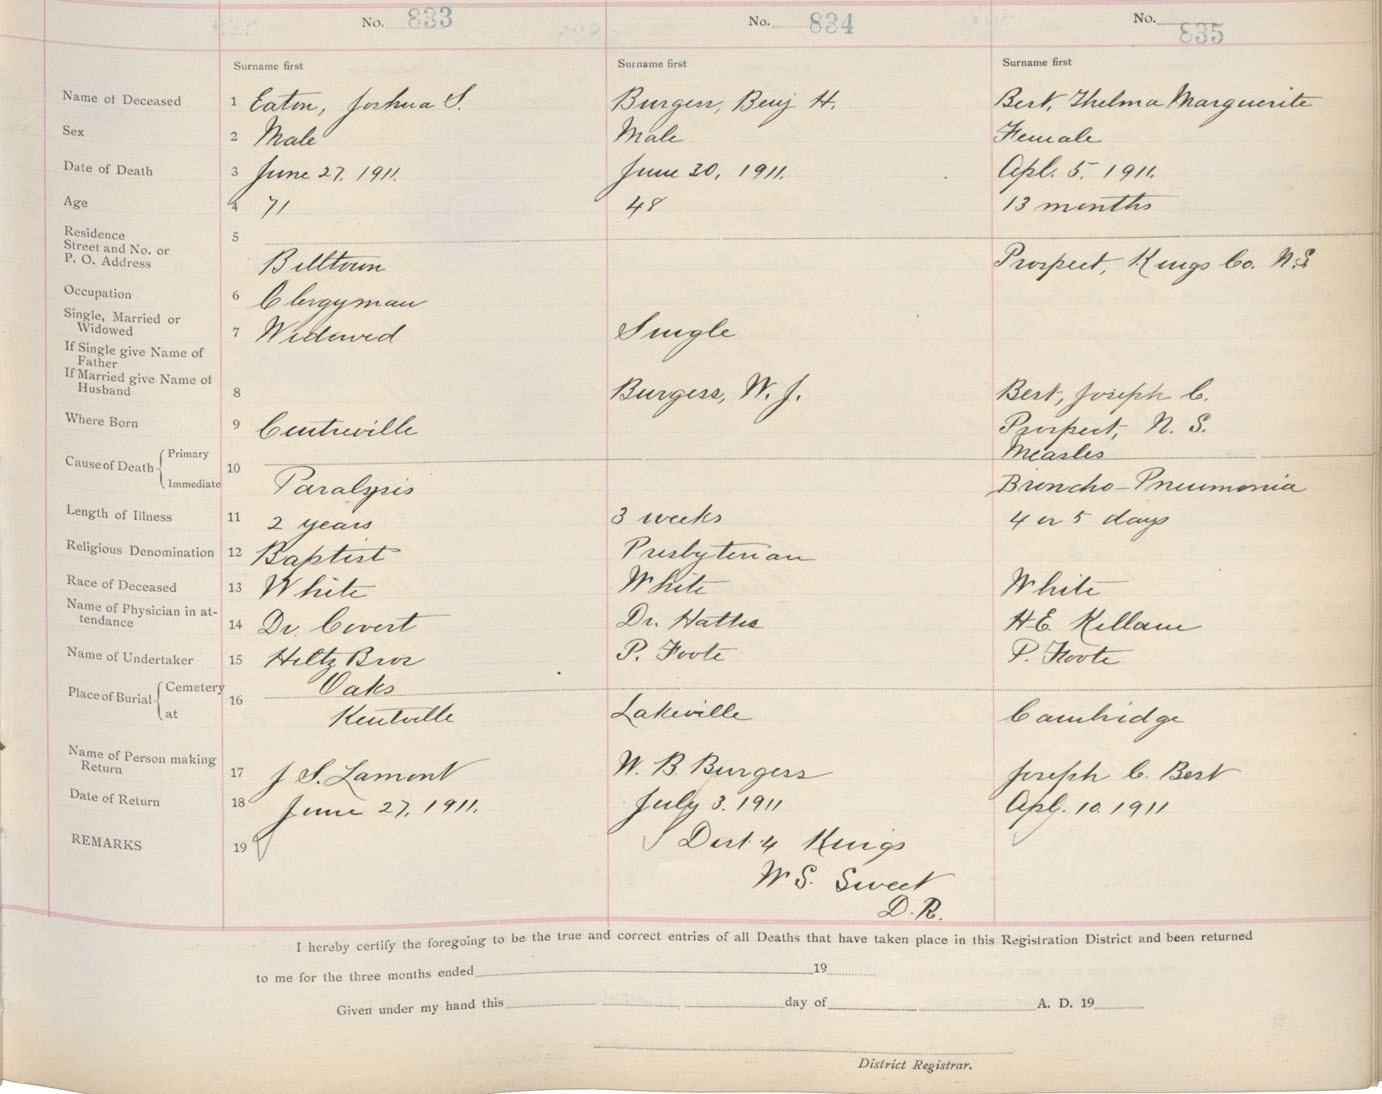 No. 833 No. 834 No. 835
Surname first Surname first Surname first
Name of Deceased 1 Eaton, Joshua S. Burgess, Benj H. Best, Thelma Marguerite
Sex 2 Male Male Female
Date of Death 3 June 27, 1911. June 30, 1911. Apl. 5. 1911.
Age 4 71 48 13 months
Residence
Street and No. or
P. O. Address 5 Billtown Prospect, Kings Co. N.S.
Occupation 6 Clergyman
Single, Married or
Widowed 7 Widowed Single
If Single give Name of
Father
If Married give Name of
Husband 8 Burgess, W. J. Best, Joseph C.
Where Born 9 Centreville Prospect, N. S.
Cause of Death Primary Measles
10
Immediate Paralysis Broncho-Pneumonia
Length of Illness 11 2 years 3 weeks 4 or 5 days
Religious Denomination 12 Baptist Presbyterian
Race of Deceased 13 White White White
Name of Physician in at-
tendance 14 Dr. Covert Dr. H.E. Kellam
Name of Undertaker 15 Hiltz Bros P. Foote P. Foote
Place of Burial Cemetery Oaks
16
at Kentville Lakeville Cambridge
Name of Person making
Return 17 J S. Lamont W. B. Burgess Joseph C. Best
Date of Return 18 June 27, 1911. July 3. 1911 Apl. 10. 1911
REMARKS 19 Dist. 4 Kings
W S. Sweet
D. R.
I hereby certify the foregoing to be the true and correct entries of all Deaths that have taken place in this Registration District and been returned
to me for the three months ended 19
Given under my hand this day of A. D. 19
District Registrar.